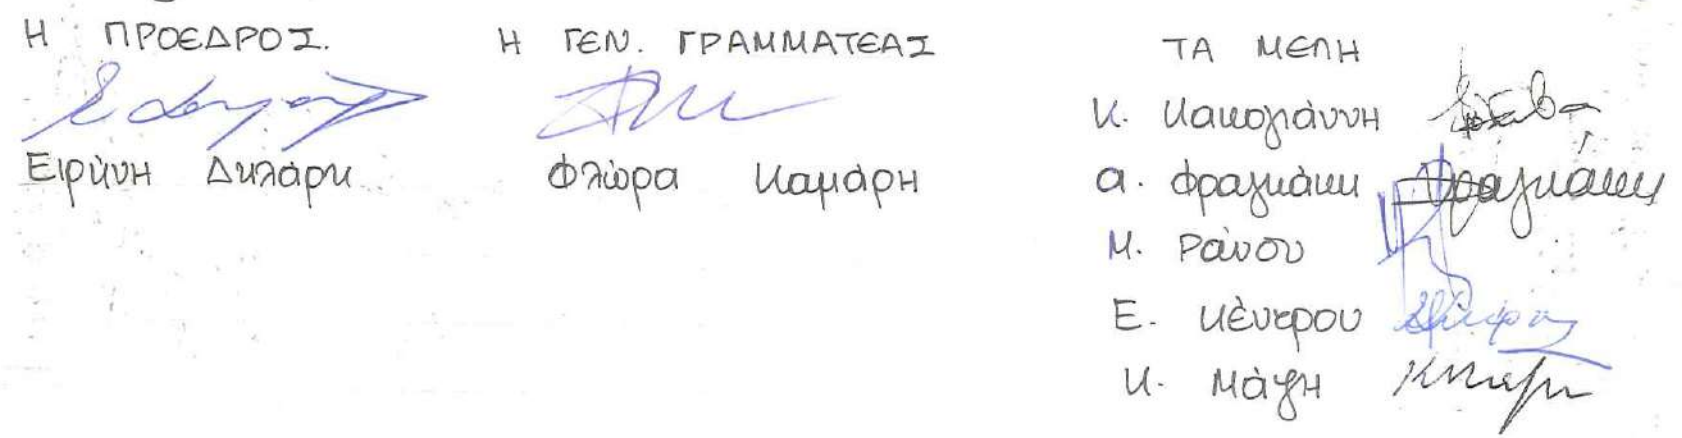 Η ΠΡΟΕΔΡΟΣ.
Ειρήνη Δηλάρη
Η ΓΕΝ. ΓΡΑΜΜΑΤΕΑΣ
Φλώρα Καμάρη
ΤΑ ΜΕΛΗ
Κ. Κακογιάννη
Α. Φραγκάκη Φραγκάκη
Μ. Ράνου
Ε. Κέντρου
Κ. Μάγη